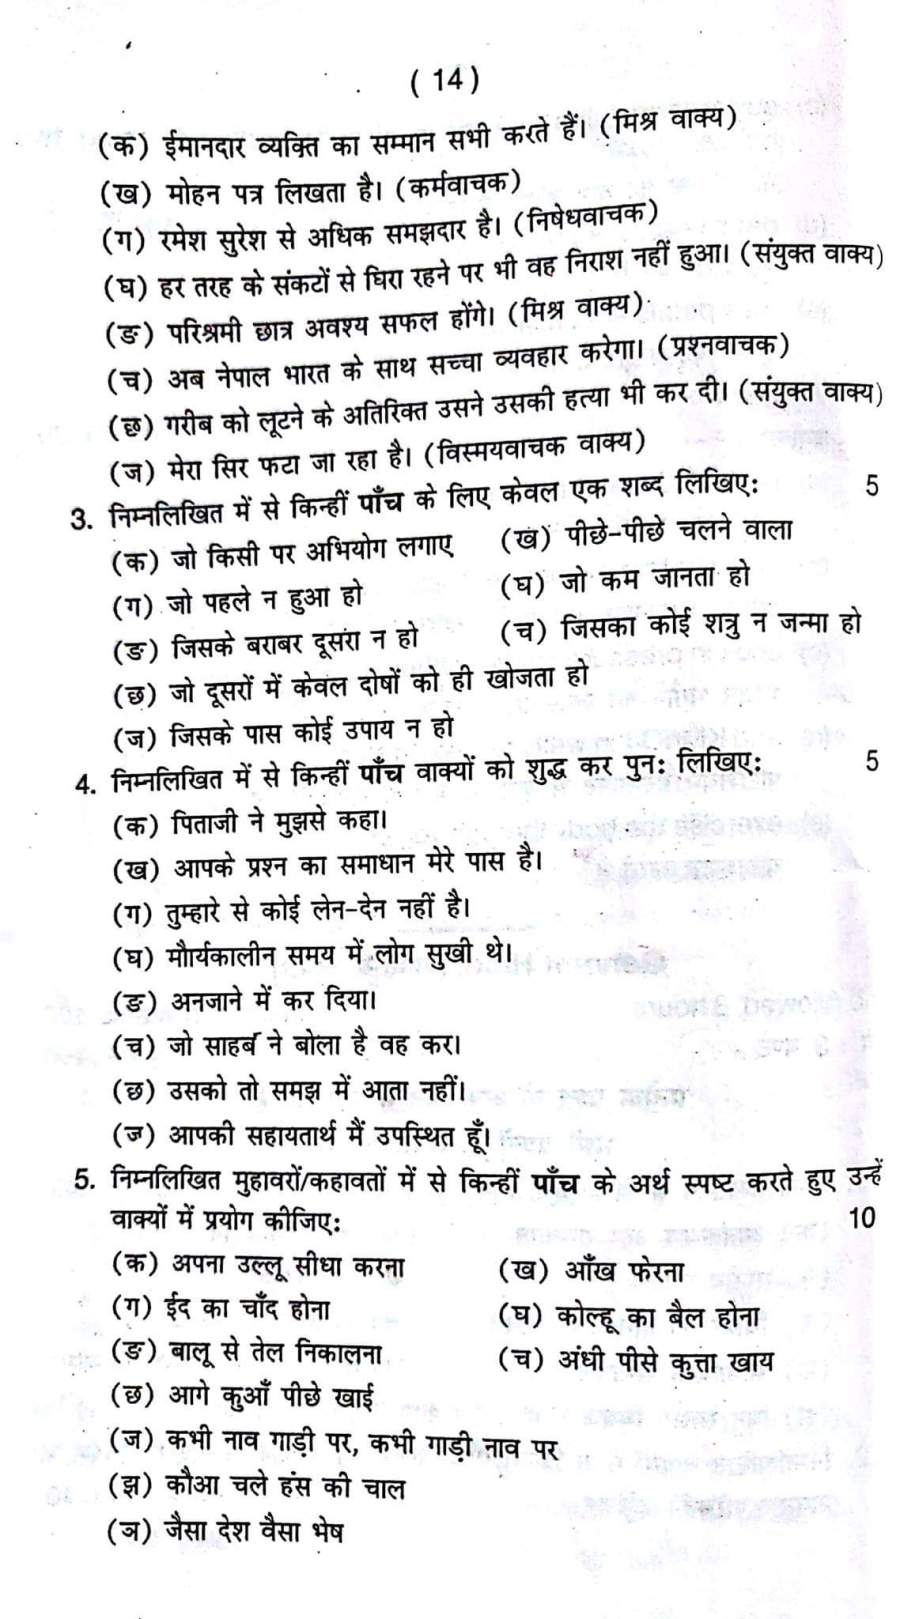 ( 14 )
(क) ईमानदार व्यक्ति का सम्मान सभी करते हैं। (मिश्र वाक्य)
(ख) मोहन पत्र लिखता है। (कर्मवाचक)
(ग) रमेश सुरेश से अधिक समझदार है। (निषेधवाचक)
(घ) हर तरह के संकटों से घिरा रहने पर भी वह निराश नहीं हुआ। (संयुक्त वाक्य)
(ङ) परिश्रमी छात्र अवश्य सफल होंगे। (मिश्र वाक्य)
(च) अब नेपाल भारत के साथ सच्चा व्यवहार करेगा। (प्रश्नवाचक)
(छ) गरीब को लूटने के अतिरिक्त उसने उसकी हत्या भी कर दी। (संयुक्त वाक्य)
(ज) मेरा सिर फटा जा रहा है। (विस्मयवाचक वाक्य)
3. निम्नलिखित में से किन्हीं पाँच के लिए केवल एक शब्द लिखिए: 5
(क) जो किसी पर अभियोग लगाए (ख) पीछे-पीछे चलने वाला
(ग) जो पहले न हुआ हो (घ) जो कम जानता हो
(ङ) जिसके बराबर दूसरा न हो (च) जिसका कोई शत्रु न जन्मा हो
(छ) जो दूसरों में केवल दोषों को ही खोजता हो
(ज) जिसके पास कोई उपाय न हो
4. निम्नलिखित में से किन्हीं पाँच वाक्यों को शुद्ध कर पुन: लिखिए: 5
(क) पिताजी ने मुझसे कहा।
(ख) आपके प्रश्न का समाधान मेरे पास है।
(ग) तुम्हारे से कोई लेन-देन नहीं है।
(घ) मौर्यकालीन समय में लोग सुखी थे।
(ङ) अनजाने में कर दिया।
(च) जो साहब ने बोला है वह कर।
(छ) उसको तो समझ में आता नहीं।
(ज) आपकी सहायतार्थ मैं उपस्थित हूँ।
5. निम्नलिखित मुहावरों/कहावतों में से किन्हीं पाँच के अर्थ स्पष्ट करते हुए उन्हें
वाक्यों में प्रयोग कीजिए: 10
(क) अपना उल्लू सीधा करना (ख) आँख फेरना
(ग) ईद का चाँद होना (घ) कोल्हू का बैल होना
(ङ) बालू से तेल निकालना (च) अंधी पीसे कुत्ता खाय
(छ) आगे कुआँ पीछे खाई
(ज) कभी नाव गाड़ी पर, कभी गाड़ी नाव पर
(झ) कौआ चले हंस की चाल
(ञ) जैसा देश वैसा भेष